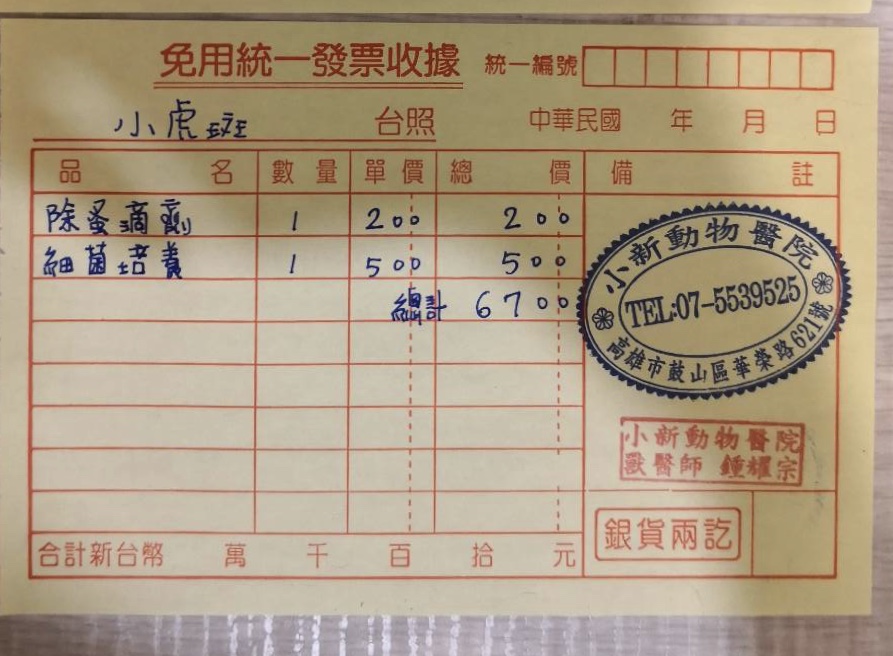 免用統一發票收據 統一編號
小虎斑 台照 中華民國 年 月 日
品名 數量 單價 總價 備註
除蚤滴劑 1 200 200
細菌培養 1 500 500
總計 6700
小新動物醫院
TEL:07-5539525
高雄市鼓山區華榮路621號
小新動物醫院
獸醫師 鍾耀宗
銀貨兩訖
合計新台幣 萬 千 百 拾 元